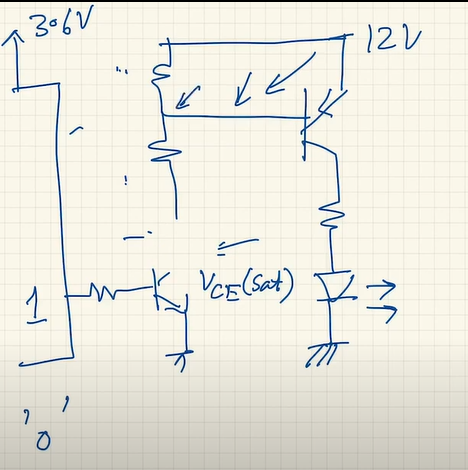 3.6V
12V
VCE(Sat)
1
'0'